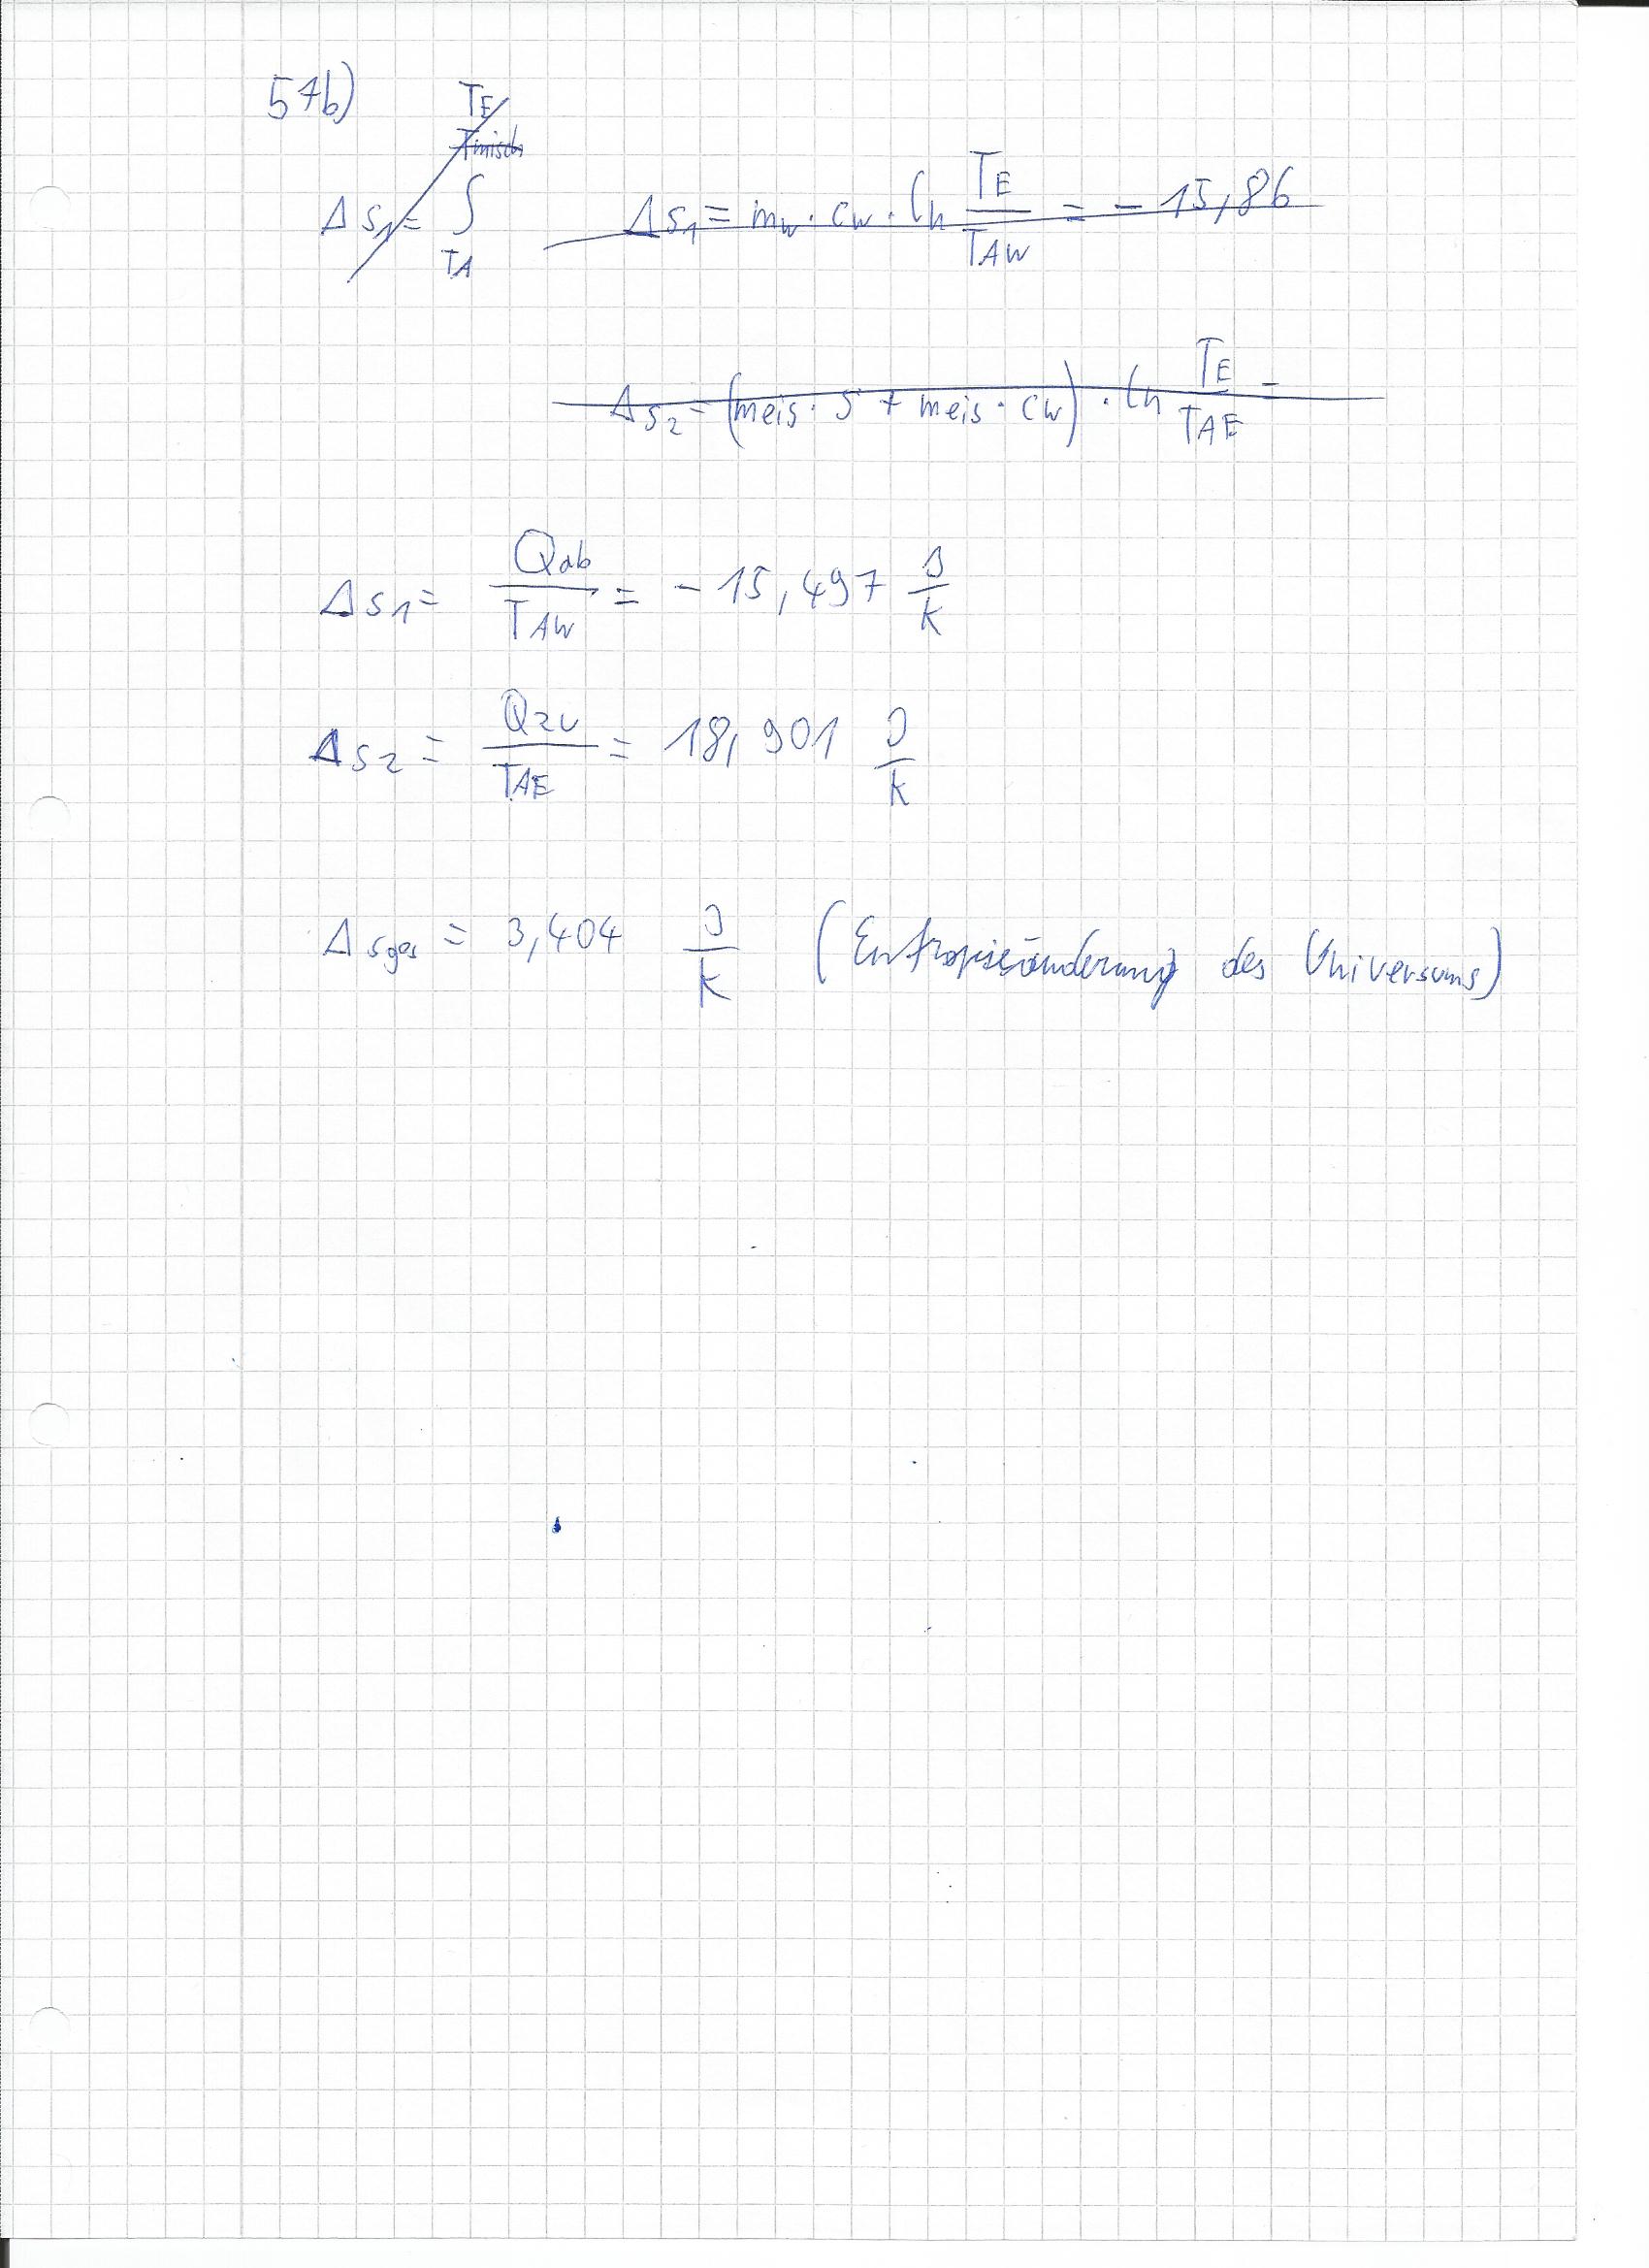 57b)
TE
Tmisch
ΔS1= ∫ ΔS1 = mw · cw · ln TE/TAW = - 15,86
TA
ΔS2 = (meis · S + meis · cw) · ln TE/TAE =
ΔS1 = Qab/TAW = - 15,497 J/K
ΔS2 = Qzu/TAE = 18,901 J/K
ΔSges = 3,404 J/K (Entropieänderung des Universums)